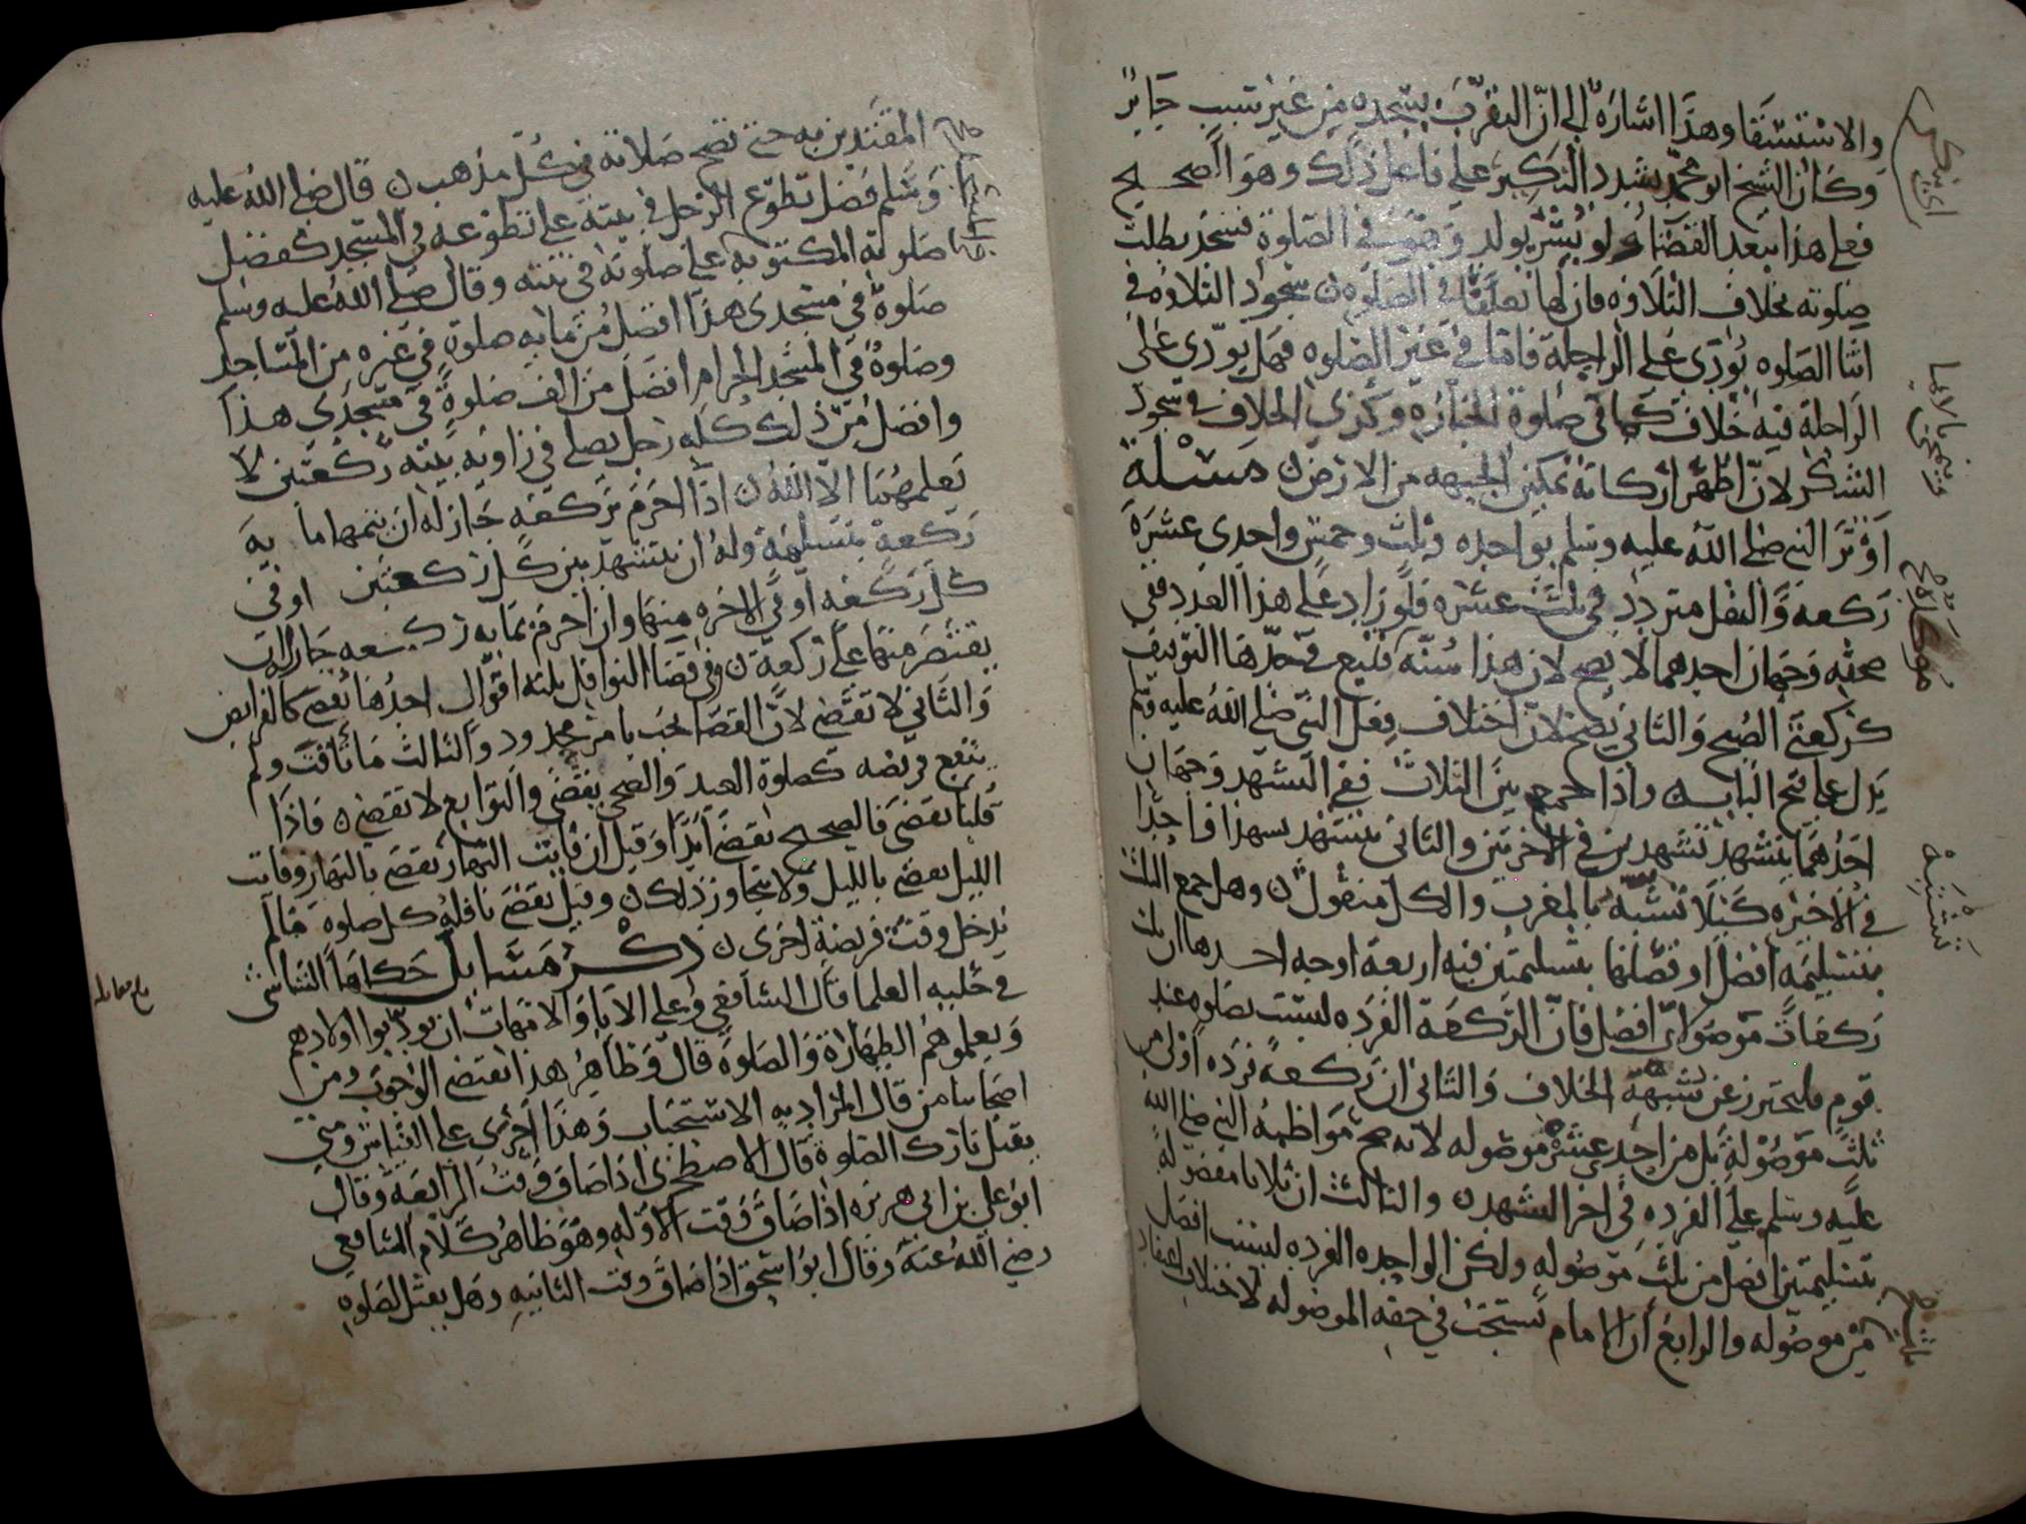 والاستسقا وهذا اشارة الى ان التقرب بسجده من غير سبب جايز
وكان الشيخ ابو محمد يشدد النكير على فاعل ذلك وهو الصحيح
فعلى هذا بعد القضاء لو بشر بولد وهو في الصلوة فسجد بطلت
صلوته بخلاف التلاوه فان لها تعلقا في الصلوه ن سجود التلاوه في
اثنا الصلوه يؤدى على الراحلة فاما في غير الصلوه فهل يؤدى على
الراحلة فيه خلاف كما في صلوة الجنازه وكذى الخلاف في سجود
الشكر لان اظهر اركانه تمكين الجبهه من الارض ن مسئلة
اوتر النبي صلى الله عليه وسلم بواحده وثلث وخمس واحدى عشرة
ركعه والنقل متردد في ثلث عشره فلو زاد على هذا العدد ففي
صحته وجهان احدهما لا يصح لان هذا سنه فيتبع في حدها التوقيف
كركعتى الصبح والثاني يصح لان اختلاف فعل النبي صلى الله عليه وسلم
يدل على فتح الباب واذا جمع بين الثلاث ففي التشهد وجهان
احدهما يتشهد تشهدين في الاخرتين والثاني يتشهد تشهدا واحدا
في الاخيره كيلا تشبه بالمغرب والكل منقول ن وهل جمع الثلث
بتسليمه افضل او فصلها بتسليمتين فيه اربعة اوجه احدها ان ثلث
ركعات موصولة افضل فان الركعة الفرده ليست بصلوه عند
قوم فليحترز عن شبهة الخلاف والثاني ان ركعة فرده اولى من
ثلث موصولة بل من احدى عشرة موصوله لانه صح مواظبة النبي صلى الله
عليه وسلم على الفرده في اخر التهجد ن والثالث ان ثلاثا مفصولة
بتسليمتين افضل من ثلث موصوله ولكن الواحده الفرده ليست افضل
من موصوله والرابع ان الامام تستحب في حقه الموصوله لاختلاف اعتقاد
المقتدين به حتى تصح صلاته في كل مذهب ن قال صلى الله عليه
وسلم فضل تطوع الرجل في بيته على تطوعه في المسجد كفضل
صلوته المكتوبه على صلوته في بيته وقال صلى الله عليه وسلم
صلوة في مسجدى هذا افضل من مايه صلوة في غيره من المساجد
وصلوة في المسجد الحرام افضل من الف صلوة في مسجدى هذا
وافضل من ذلك كله رجل يصلى في زاويه بيته ركعتين لا
يعلمهما الا الله ن اذا احرم بركعه جاز له ان يتمها مايه
ركعة بتسليمة وله ان يتشهد بين كل ركعتين او في
كل ركعه او في الاخره منهما وان احرم بمايه ركعه جاز له ان
يقتصر منها على ركعة ن وفي قضا النوافل ثلثه اقوال احدها تقضى كالفرايض
والثاني لا تقضى لان القضا يجب بامر مجدود والثالث ما تاقت ولم
يتبع فريضه كصلوة العيد والضحى يقضى والتوابع لا تقضى ن فاذا
قلنا تقضى فالصحيح تقضى ابدا وقيل ان فايت النهار تقضى بالنهار وفايت
الليل تقضى بالليل ولا يتجاوز ذلك ن وقيل تقضى نافلة كل صلوة مالم
يدخل وقت فريضة اخرى ن ذكر مسايل حكاها الشاشى
في حليه العلما قال الشافعي وعلى الابا والامهات ان يودبوا اولادهم
ويعلموهم الطهارة والصلوة قال وظاهر هذا يقتضى الوجوب ومن
اصحابنا من قال المراد به الاستحباب وهذا اجرى على القياس ومتى
يقتل تارك الصلوة قال الاصطخرى اذا ضاق وقت الرابعة وقال
ابو على بن ابى هريره اذا ضاق وقت الاوله وهو ظاهر كلام الشافعي
رضي الله عنه وقال ابو اسحق اذا ضاق وقت الثانيه وهل يقتل لصلوه